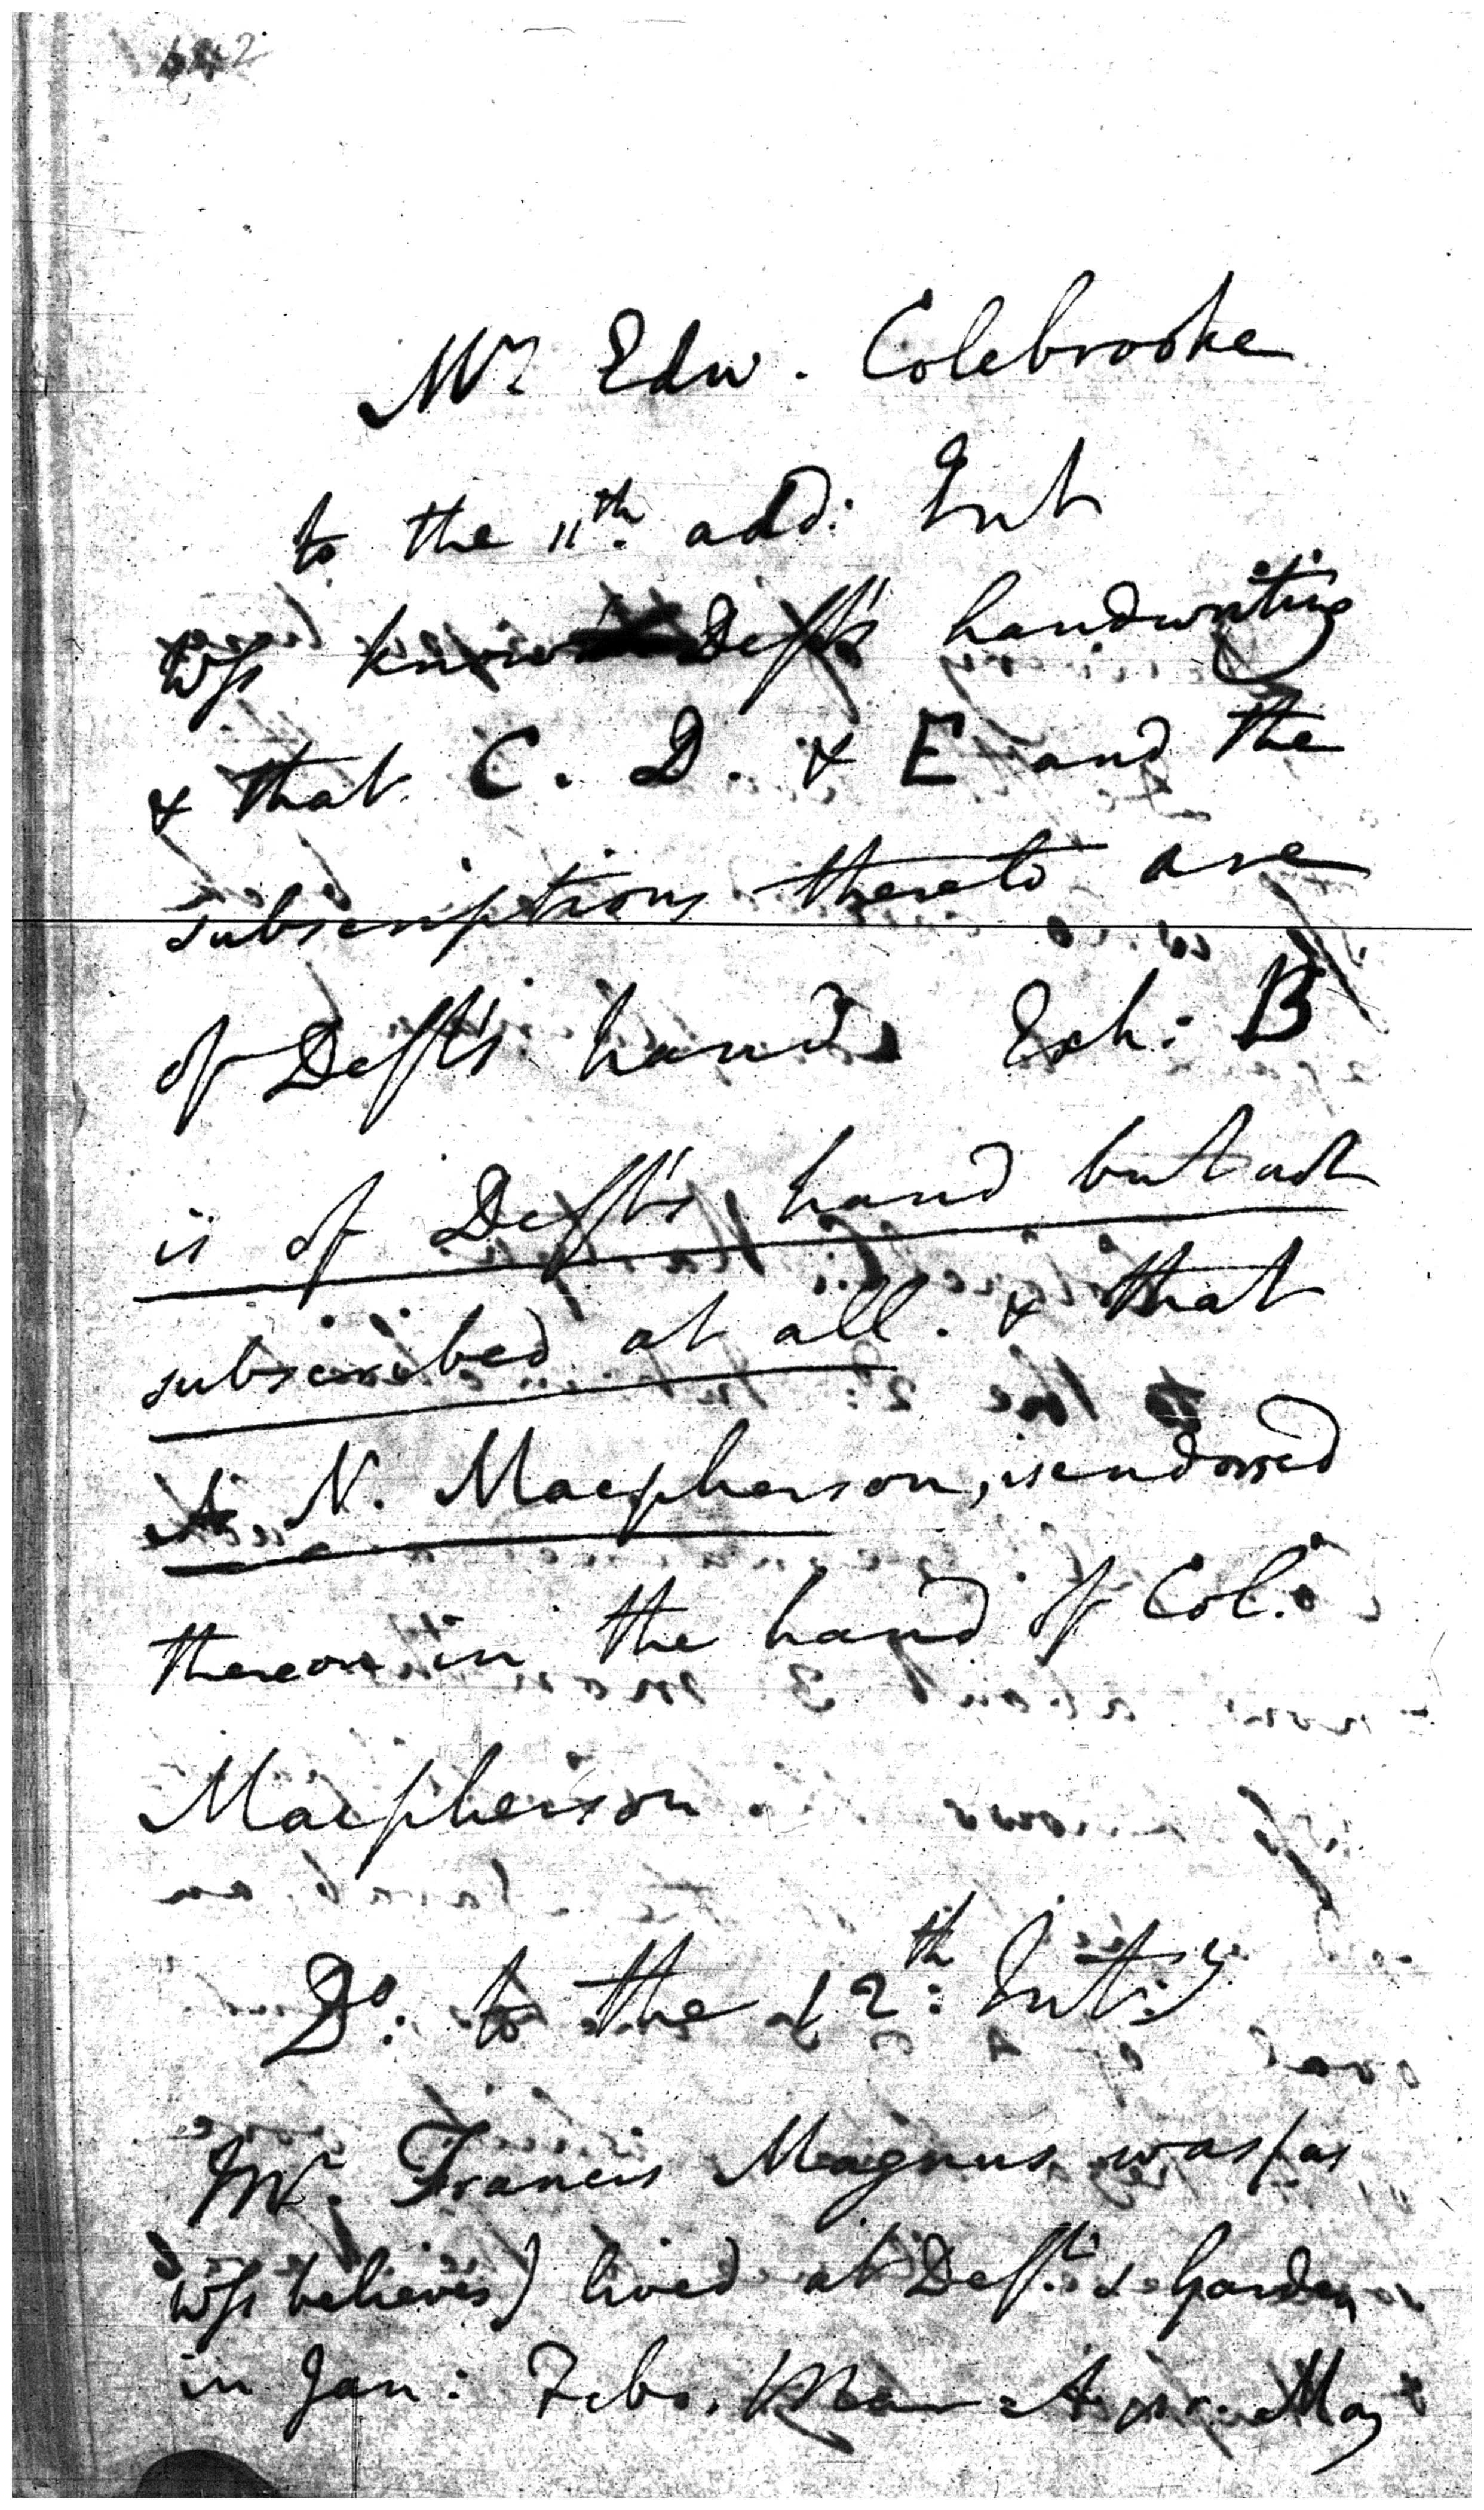 642
Mr Edw. Colebrooke
to the 11th. add: Int
Wss knows Deft's handwriting
& that C. D. & E and the
subscriptions thereto are
of Deft's hand Exh: B
is of Deft's hand but not
subscribed at all. & that
A, N. Macpherson, is endorsed
thereon in the hand of Col.
Macpherson.
Do: to the 12th: Inty
Mr. Francis Magnus was (as
Wss believes) lived at Deft's Garden
in Jan: Feb. Mar Apr. May